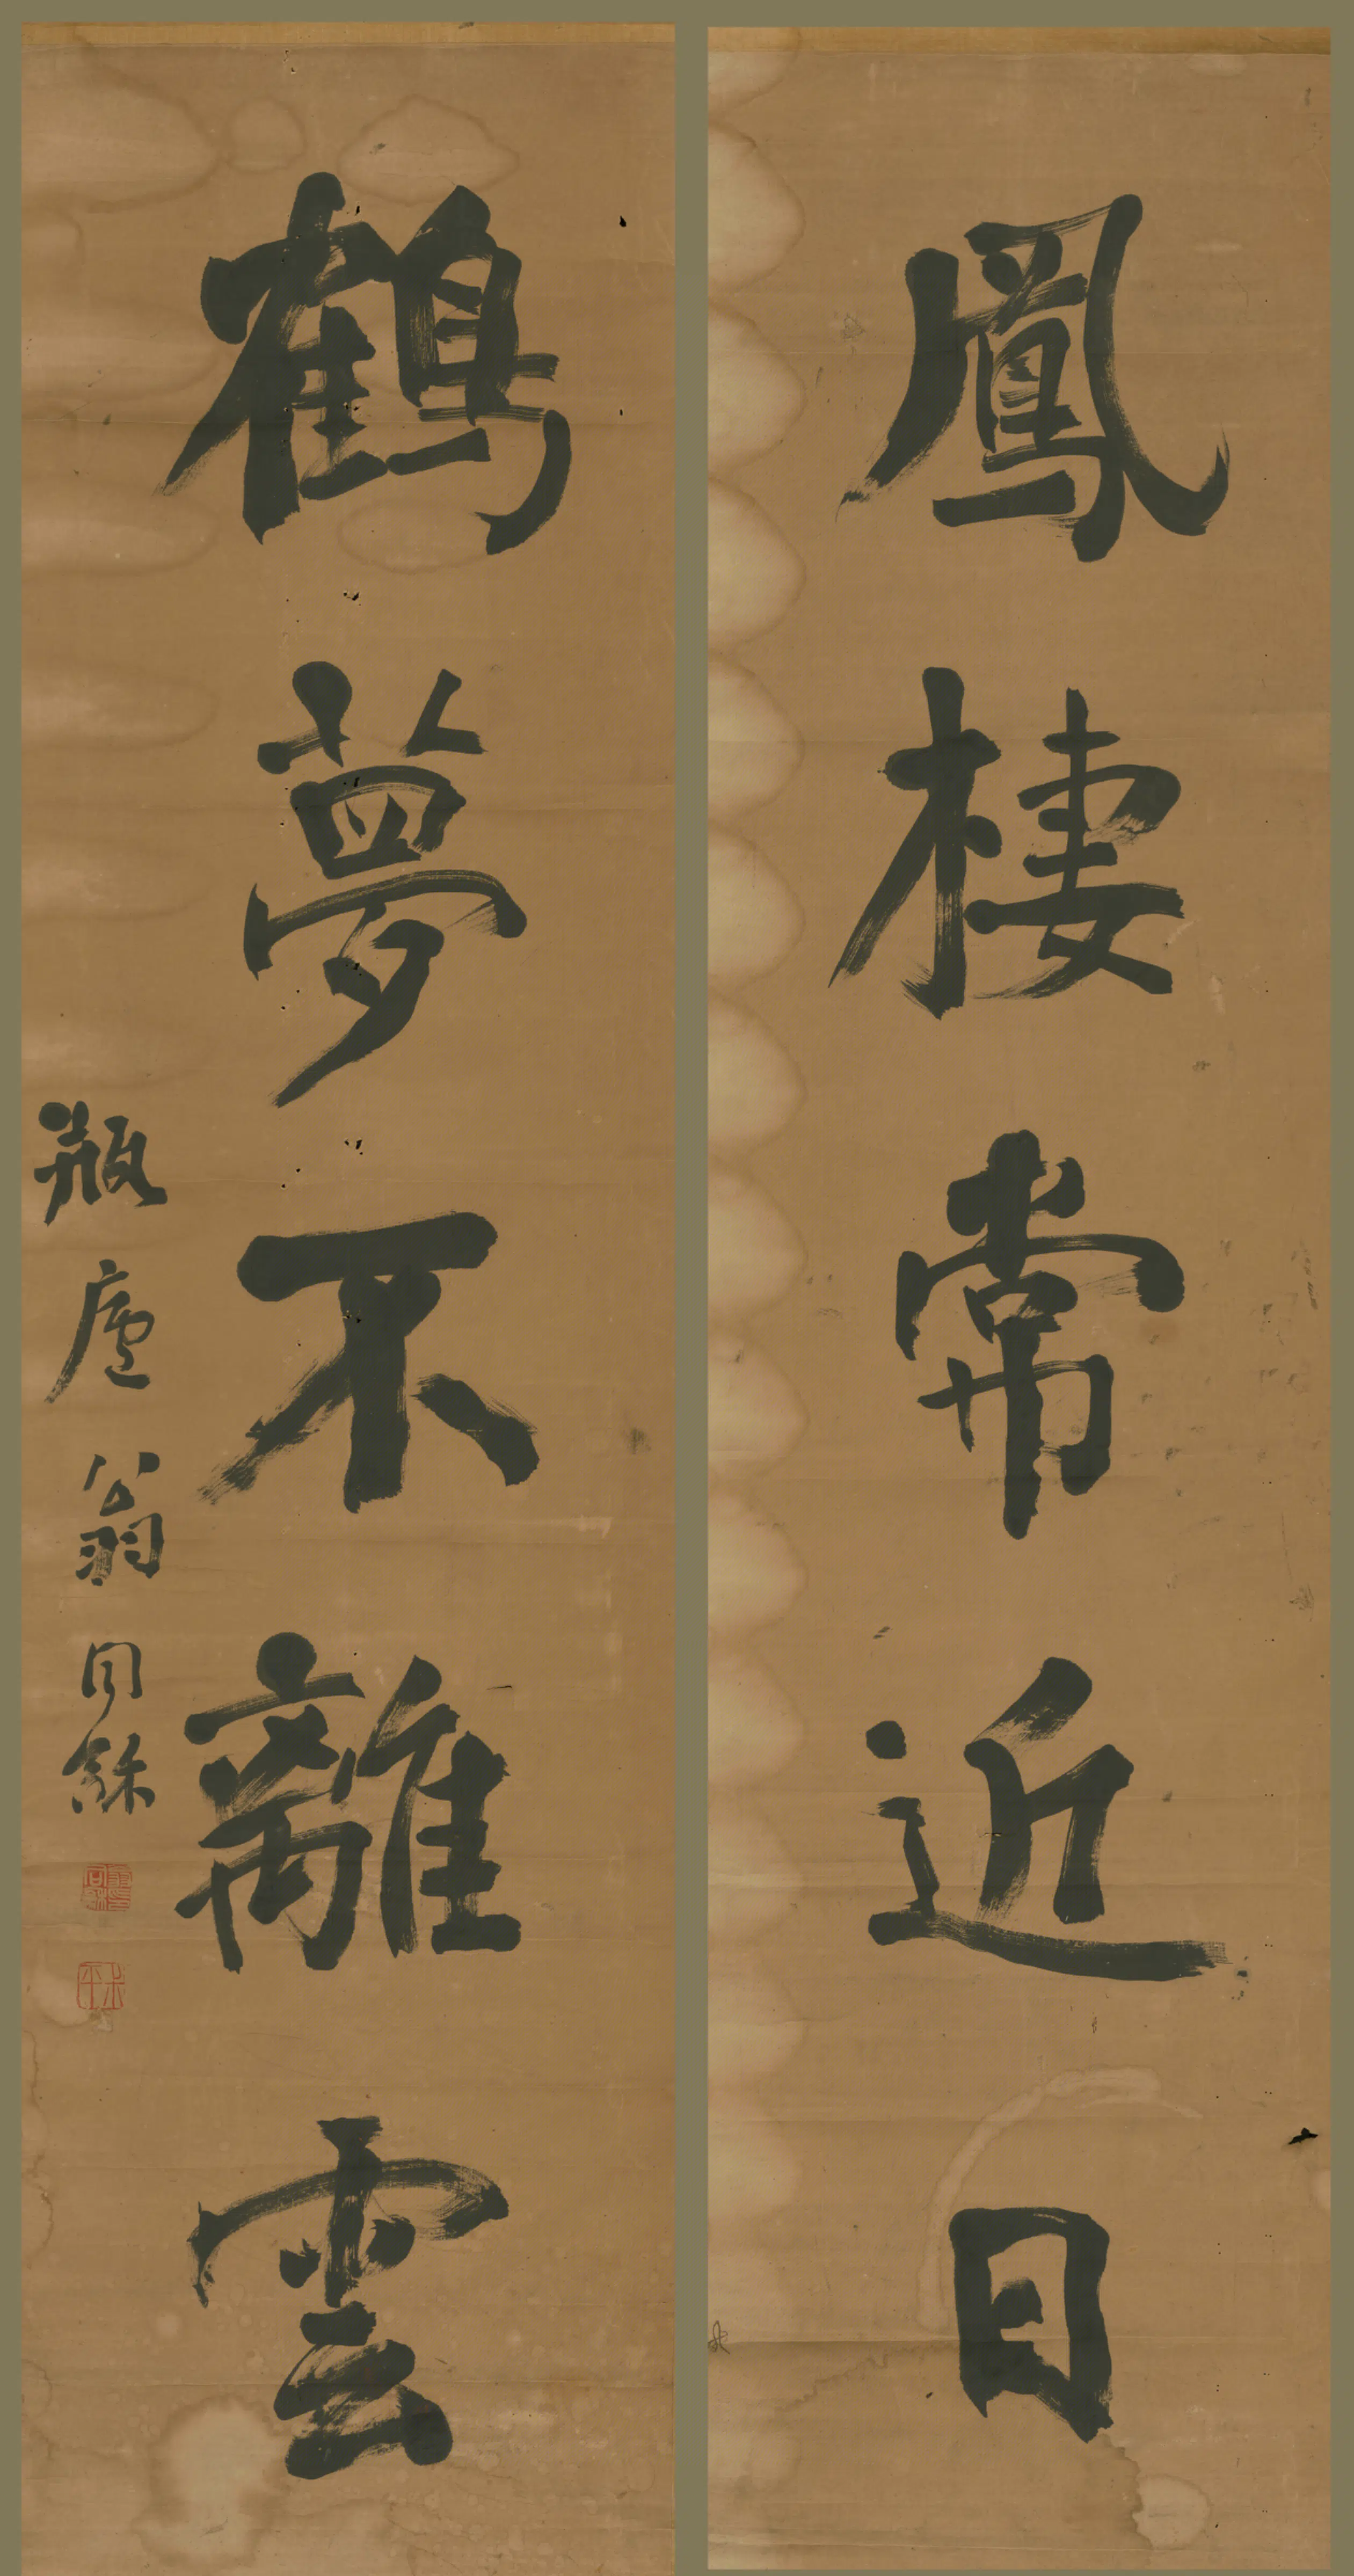 鳳棲常近日
鶴夢不離雲
瓶廬翁同龢